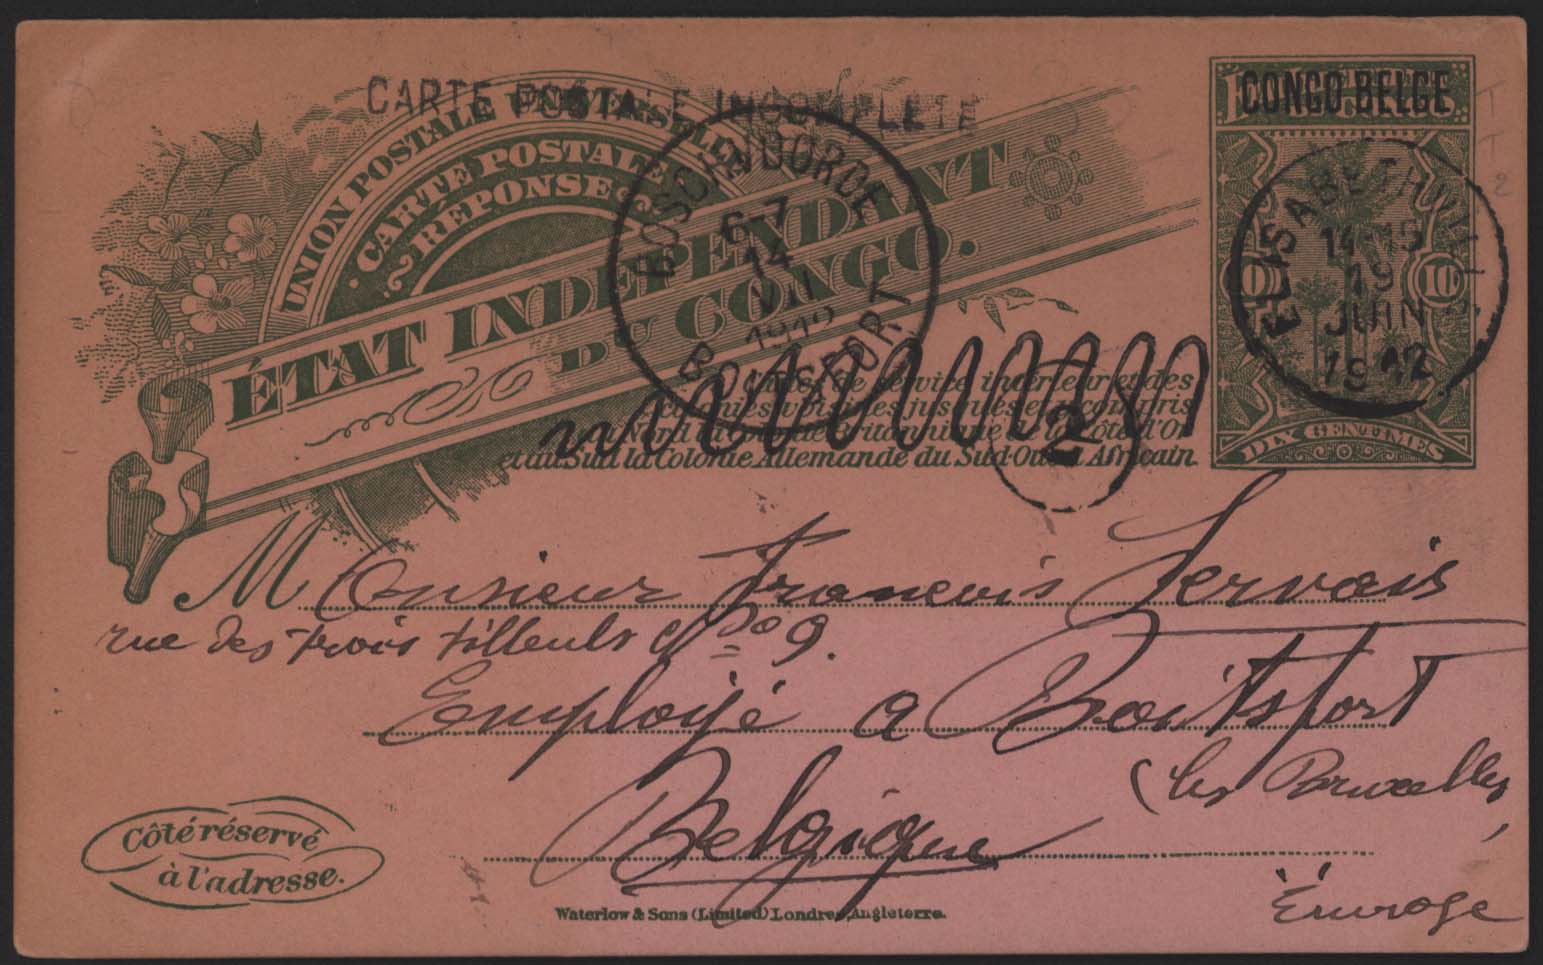 CARTE POSTALE INCOMPLETE
UNION POSTALE UNIVERSELLE
CARTE POSTALE
RÉPONSE
ÉTAT INDÉPENDANT
DU CONGO.
CONGO BELGE
10 10
DIX CENTIMES
ELISABETHVILLE
14-15
19
JUIN
1912
BOSCHVOORDE
6-7
14
VII
1912
BOITSFORT
2
service intérieur et des
et au Sud la Colonie Allemande du Sud-Ouest Africain.
Monsieur François Servais
rue des trois tilleuls No 9.
Employé a Boitsfort
(les Bruxelles
Belgique
Europe
Côté réservé
à l'adresse.
Waterlow & Sons (Limited) Londres, Angleterre.